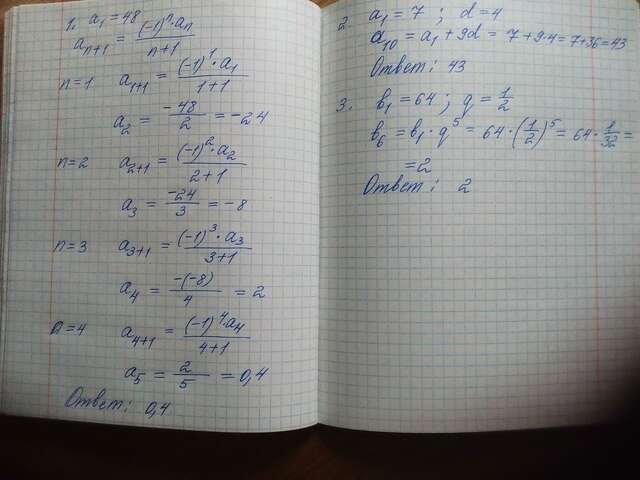 1. a₁ = 48
aₙ₊₁ = (-1)ⁿ · aₙ / n+1
n=1 a₁₊₁ = (-1)¹ · a₁ / 1+1
a₂ = -48 / 2 = -24
n=2 a₂₊₁ = (-1)² · a₂ / 2+1
a₃ = -24 / 3 = -8
n=3 a₃₊₁ = (-1)³ · a₃ / 3+1
a₄ = -(-8) / 4 = 2
n=4 a₄₊₁ = (-1)⁴ · a₄ / 4+1
a₅ = 2 / 5 = 0,4
Ответ: 0,4
2. a₁ = 7 ; d = 4
a₁₀ = a₁ + 9d = 7 + 9·4 = 7+36=43
Ответ: 43
3. b₁ = 64 ; q = 1/2
b₆ = b₁ · q⁵ = 64 · (1/2)⁵ = 64 · 1/32 =
= 2
Ответ: 2